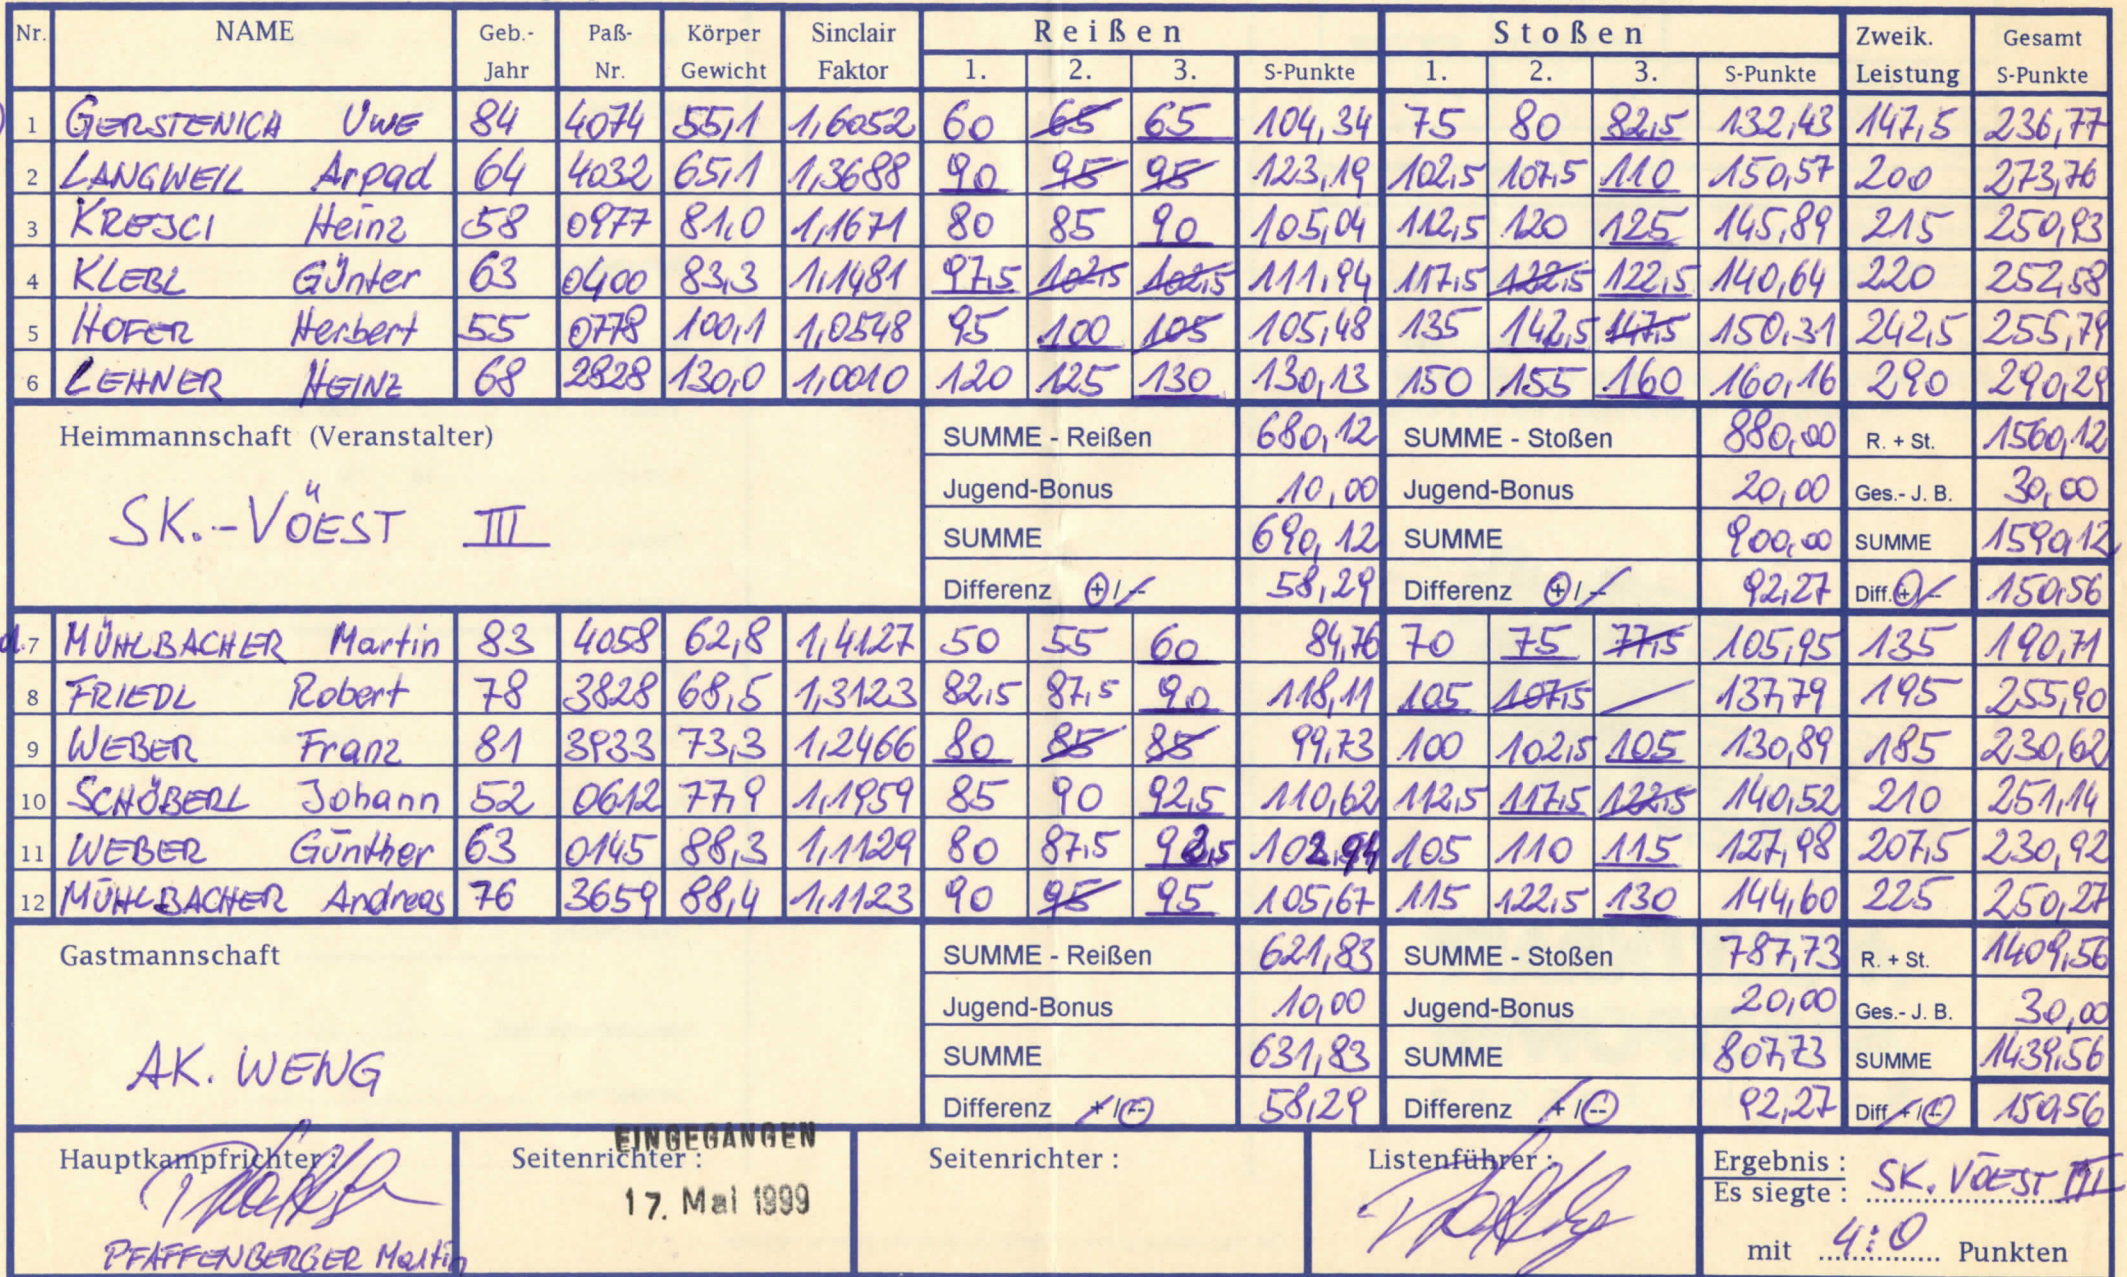 Nr. NAME Geb.- Paß- Körper Sinclair Reißen Stoßen Zweik. Gesamt
Jahr Nr. Gewicht Faktor 1. 2. 3. S-Punkte 1. 2. 3. S-Punkte Leistung S-Punkte
1 GERSTENICA UWE 84 4074 55,1 1,6052 60 65 65 104,34 75 80 82,5 132,43 147,5 236,77
2 LANGWEIL Arpad 64 4032 65,1 1,3688 90 95 95 123,19 102,5 107,5 110 150,57 200 273,76
3 KREJCI Heinz 58 0977 81,0 1,1671 80 85 90 105,04 112,5 120 125 145,89 215 250,93
4 KLEBL Günter 63 0400 83,3 1,1481 97,5 102,5 102,5 111,94 117,5 122,5 122,5 140,64 220 252,58
5 HOFER Herbert 55 0778 100,1 1,0548 95 100 105 105,48 135 142,5 147,5 150,31 242,5 255,79
6 LEHNER HEINZ 68 2828 130,0 1,0010 120 125 130 130,13 150 155 160 160,16 290 290,29
Heimmannschaft (Veranstalter) SUMME - Reißen 680,12 SUMME - Stoßen 880,00 R. + St. 1560,12
Jugend-Bonus 10,00 Jugend-Bonus 20,00 Ges.- J. B. 30,00
SK.-VÖEST III SUMME 690,12 SUMME 900,00 SUMME 1590,12
Differenz +/- 58,29 Differenz +/- 92,27 Diff.+/- 150,56
7 MÜHLBACHER Martin 83 4058 62,8 1,4127 50 55 60 84,76 70 75 77,5 105,95 135 190,71
8 FRIEDL Robert 78 3828 68,5 1,3123 82,5 87,5 90 118,11 105 107,5 137,79 195 255,90
9 WEBER Franz 81 3933 73,3 1,2466 80 85 85 99,73 100 102,5 105 130,89 185 230,62
10 SCHÖBERL Johann 52 0612 77,9 1,1959 85 90 92,5 110,62 112,5 117,5 122,5 140,52 210 251,14
11 WEBER Günther 63 0145 88,3 1,1129 80 87,5 92,5 102.94 105 110 115 127,98 207,5 230,92
12 MÜHLBACHER Andreas 76 3659 88,4 1,1123 90 95 95 105,67 115 122,5 130 144,60 225 250,27
Gastmannschaft SUMME - Reißen 621,83 SUMME - Stoßen 787,73 R. + St. 1409,56
Jugend-Bonus 10,00 Jugend-Bonus 20,00 Ges.- J. B. 30,00
AK. WENG SUMME 631,83 SUMME 807,73 SUMME 1439,56
Differenz +/- 58,29 Differenz +/- 92,27 Diff +/- 150,56
EINGEGANGEN
Hauptkampfrichter : Seitenrichter : Seitenrichter : Listenführer : Ergebnis :
17. Mai 1999 Es siegte : SK. VÖEST III
PFAFFENBERGER Martin mit 4:0 Punkten